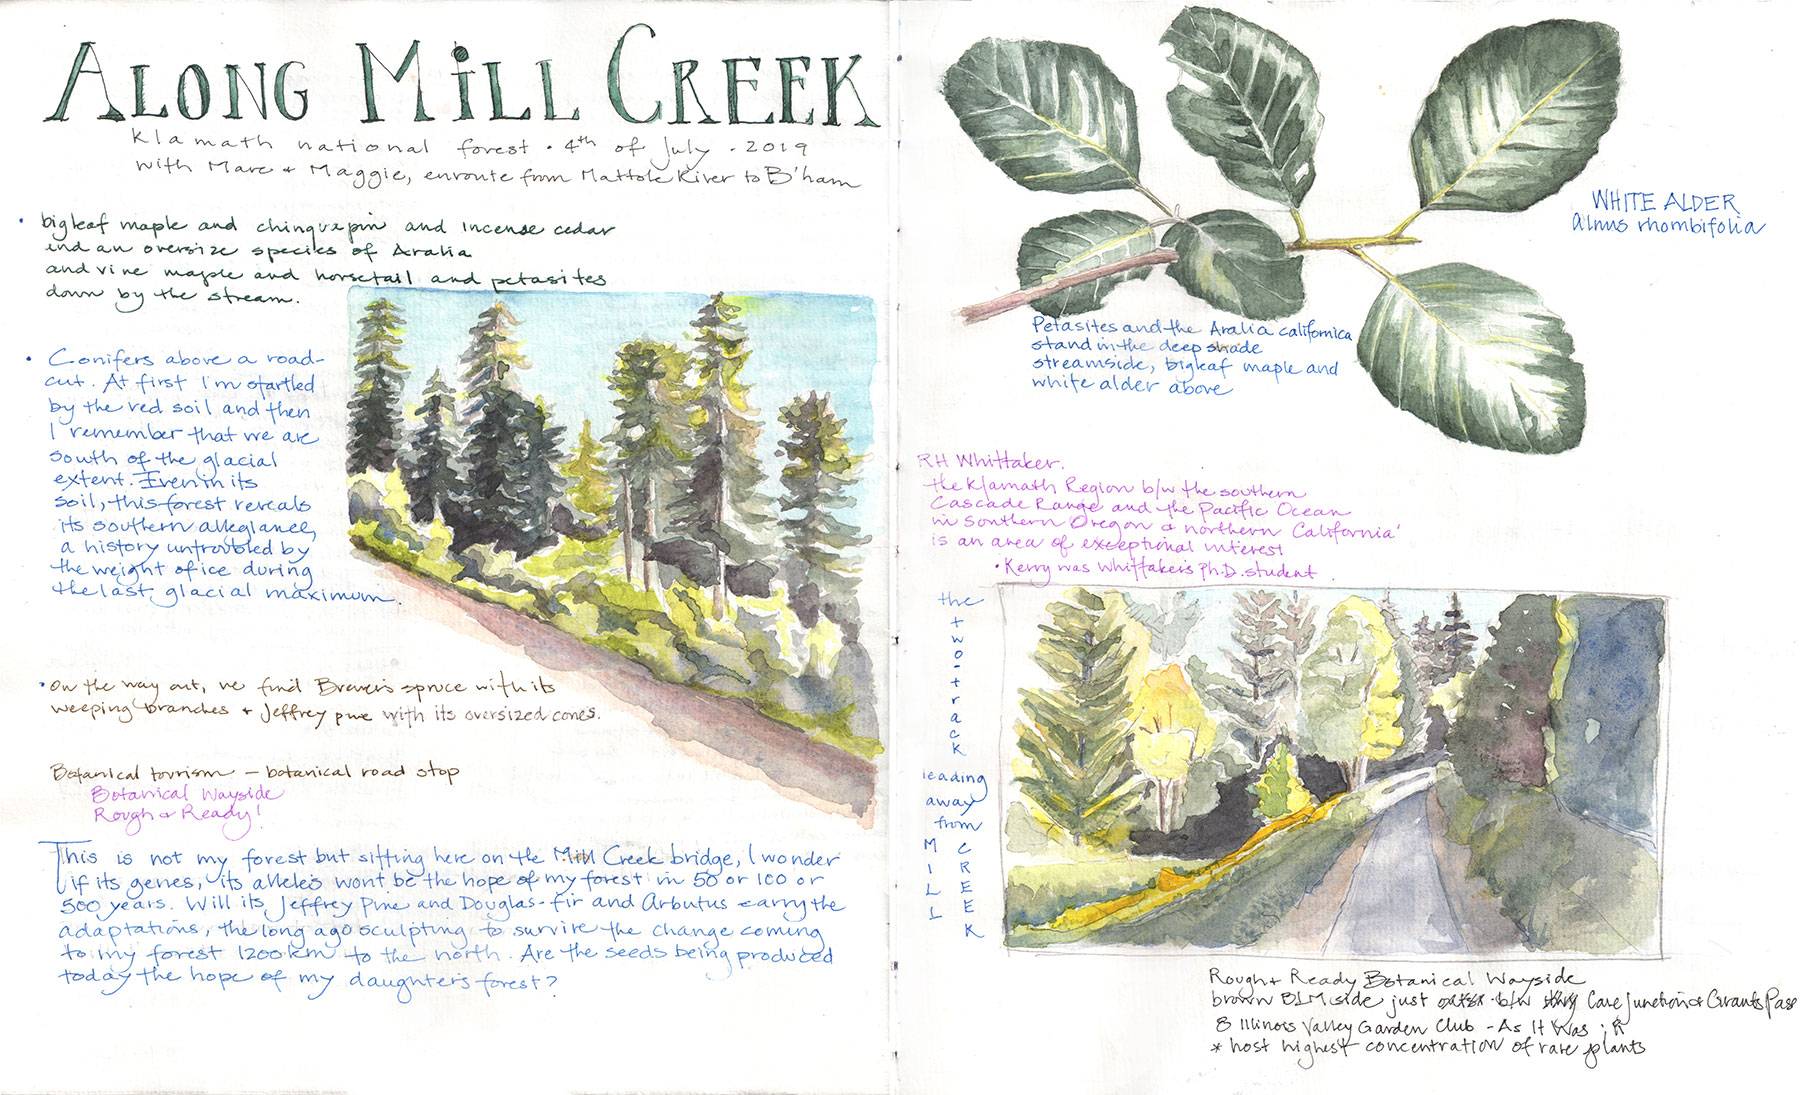 ALONG MiLL CREEK
Klamath national forest · 4th of July · 2019
with Marc + Maggie, enroute from Mattole River to B'ham
• bigleaf maple and chinquapin and incense cedar
and an oversize species of Aralia
and vine maple and horsetail and petasites
down by the stream.
• Conifers above a road-
cut. At first I'm startled
by the red soil and then
I remember that we are
south of the glacial
extent. Even in its
soil, this forest reveals
its southern allegiance,
a history untroubled by
the weight of ice during
the last glacial maximum.
• On the way out, we find Brewer's spruce with its
weeping branches + Jeffrey pine with its oversized cones.
Botanical tourism — botanical road stop
Botanical Wayside
Rough & Ready!
This is not my forest but sitting here on the Mill Creek bridge, I wonder
if its genes, its alleles wont be the hope of my forest in 50 or 100 or
500 years. Will its Jeffrey Pine and Douglas-fir and Arbutus carry the
adaptations, the long ago sculpting to survive the change coming
to my forest 1200 km to the north. Are the seeds being produced
today the hope of my daughter's forest?
WHITE ALDER
Alnus rhombifolia
Petasites and the Aralia californica
stand in the deep shade
streamside, bigleaf maple and
white alder above
RH Whittaker.
the Klamath Region b/w the southern
Cascade Range and the Pacific Ocean
in southern Oregon & northern California'
is an area of exceptional interest
• Kerry was Whittaker's Ph.D. student
the two-track
leading
away
from
MILL CREEK
Rough + Ready Botanical Wayside
brown BLM side just b/w Cave Junction & Grants Pass
8 Illinois Valley Garden Club - As It Was
* host highest concentration of rare plants